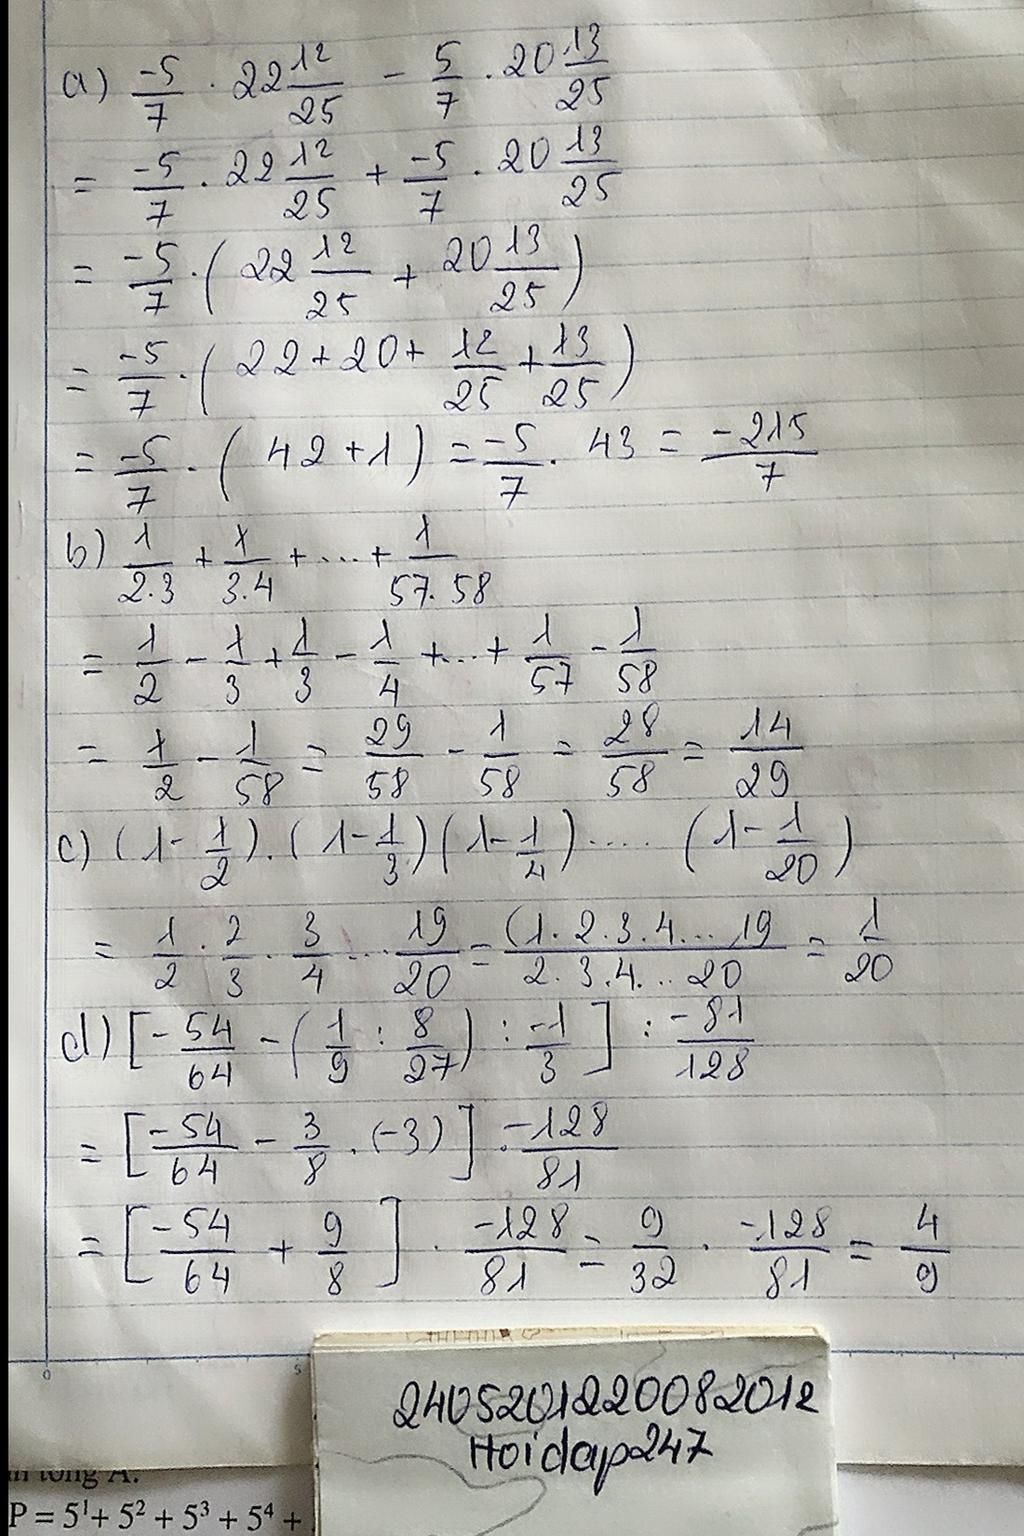 a) -5/7 . 22 12/25 - 5/7 . 20 13/25
= -5/7 . 22 12/25 + -5/7 . 20 13/25
= -5/7 . ( 22 12/25 + 20 13/25 )
= -5/7 . ( 22 + 20 + 12/25 + 13/25 )
= -5/7 . ( 42 + 1 ) = -5/7 . 43 = -215/7
b) 1/2.3 + 1/3.4 + ... + 1/57.58
= 1/2 - 1/3 + 1/3 - 1/4 + ... + 1/57 - 1/58
= 1/2 - 1/58 = 29/58 - 1/58 = 28/58 = 14/29
c) (1 - 1/2) . (1 - 1/3) (1 - 1/4) .... (1 - 1/20)
= 1/2 . 2/3 . 3/4 ... 19/20 = (1.2.3.4...19/2.3.4...20 = 1/20
d) [ -54/64 - (1/9 : 8/27) : -1/3 ] : -81/128
= [ -54/64 - 3/8 . (-3) ] . -128/81
= [ -54/64 + 9/8 ] . -128/81 = 9/32 . -128/81 = 4/9
0 5
2405201220082012
Hoidap247
tổng A.
P = 5¹ + 5² + 5³ + 5⁴ +